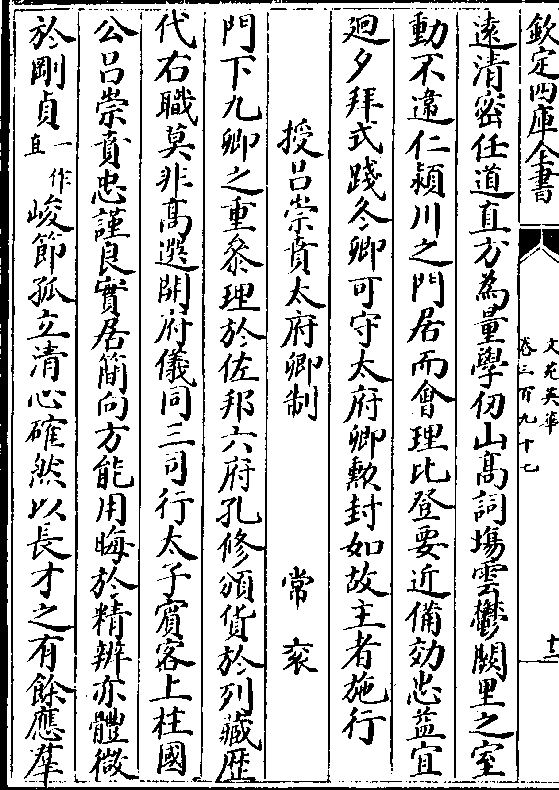 欽定四庫全書
文苑英華
卷三百九十七
十二
遠清密任道直方為量學仞山高詞塲雲鬱闕里之室
動不違仁潁川之門居而會理比登要近備効忠益宜
廻夕拜式踐冬卿可守太府卿勲封如故主者施行
授吕崇賁太府卿制
常衮
門下九卿之重叅理於佐邦六府孔修頒貨於列藏歴
代右職莫非高選開府儀同三司行太子賓客上柱國
公吕崇賁忠謹良實居簡向方能用晦於精辨亦體微
於剛貞一作直峻節孤立清心確然以長才之有餘應羣